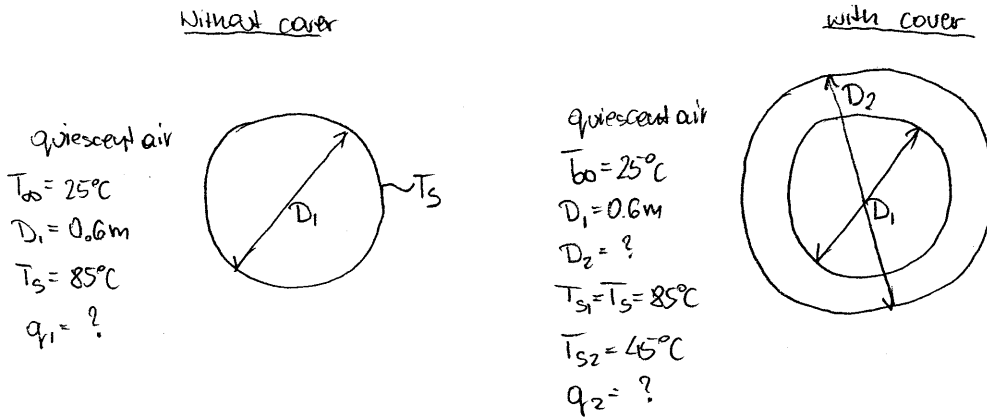 Without cover
quiescent air
T∞ = 25°C
D₁ = 0.6m
Tₛ = 85°C
q₁ = ?
D₁
Tₛ
with cover
quiescent air
T∞ = 25°C
D₁ = 0.6m
D₂ = ?
Tₛ₁ = Tₛ = 85°C
Tₛ₂ = 45°C
q₂ = ?
D₂
D₁